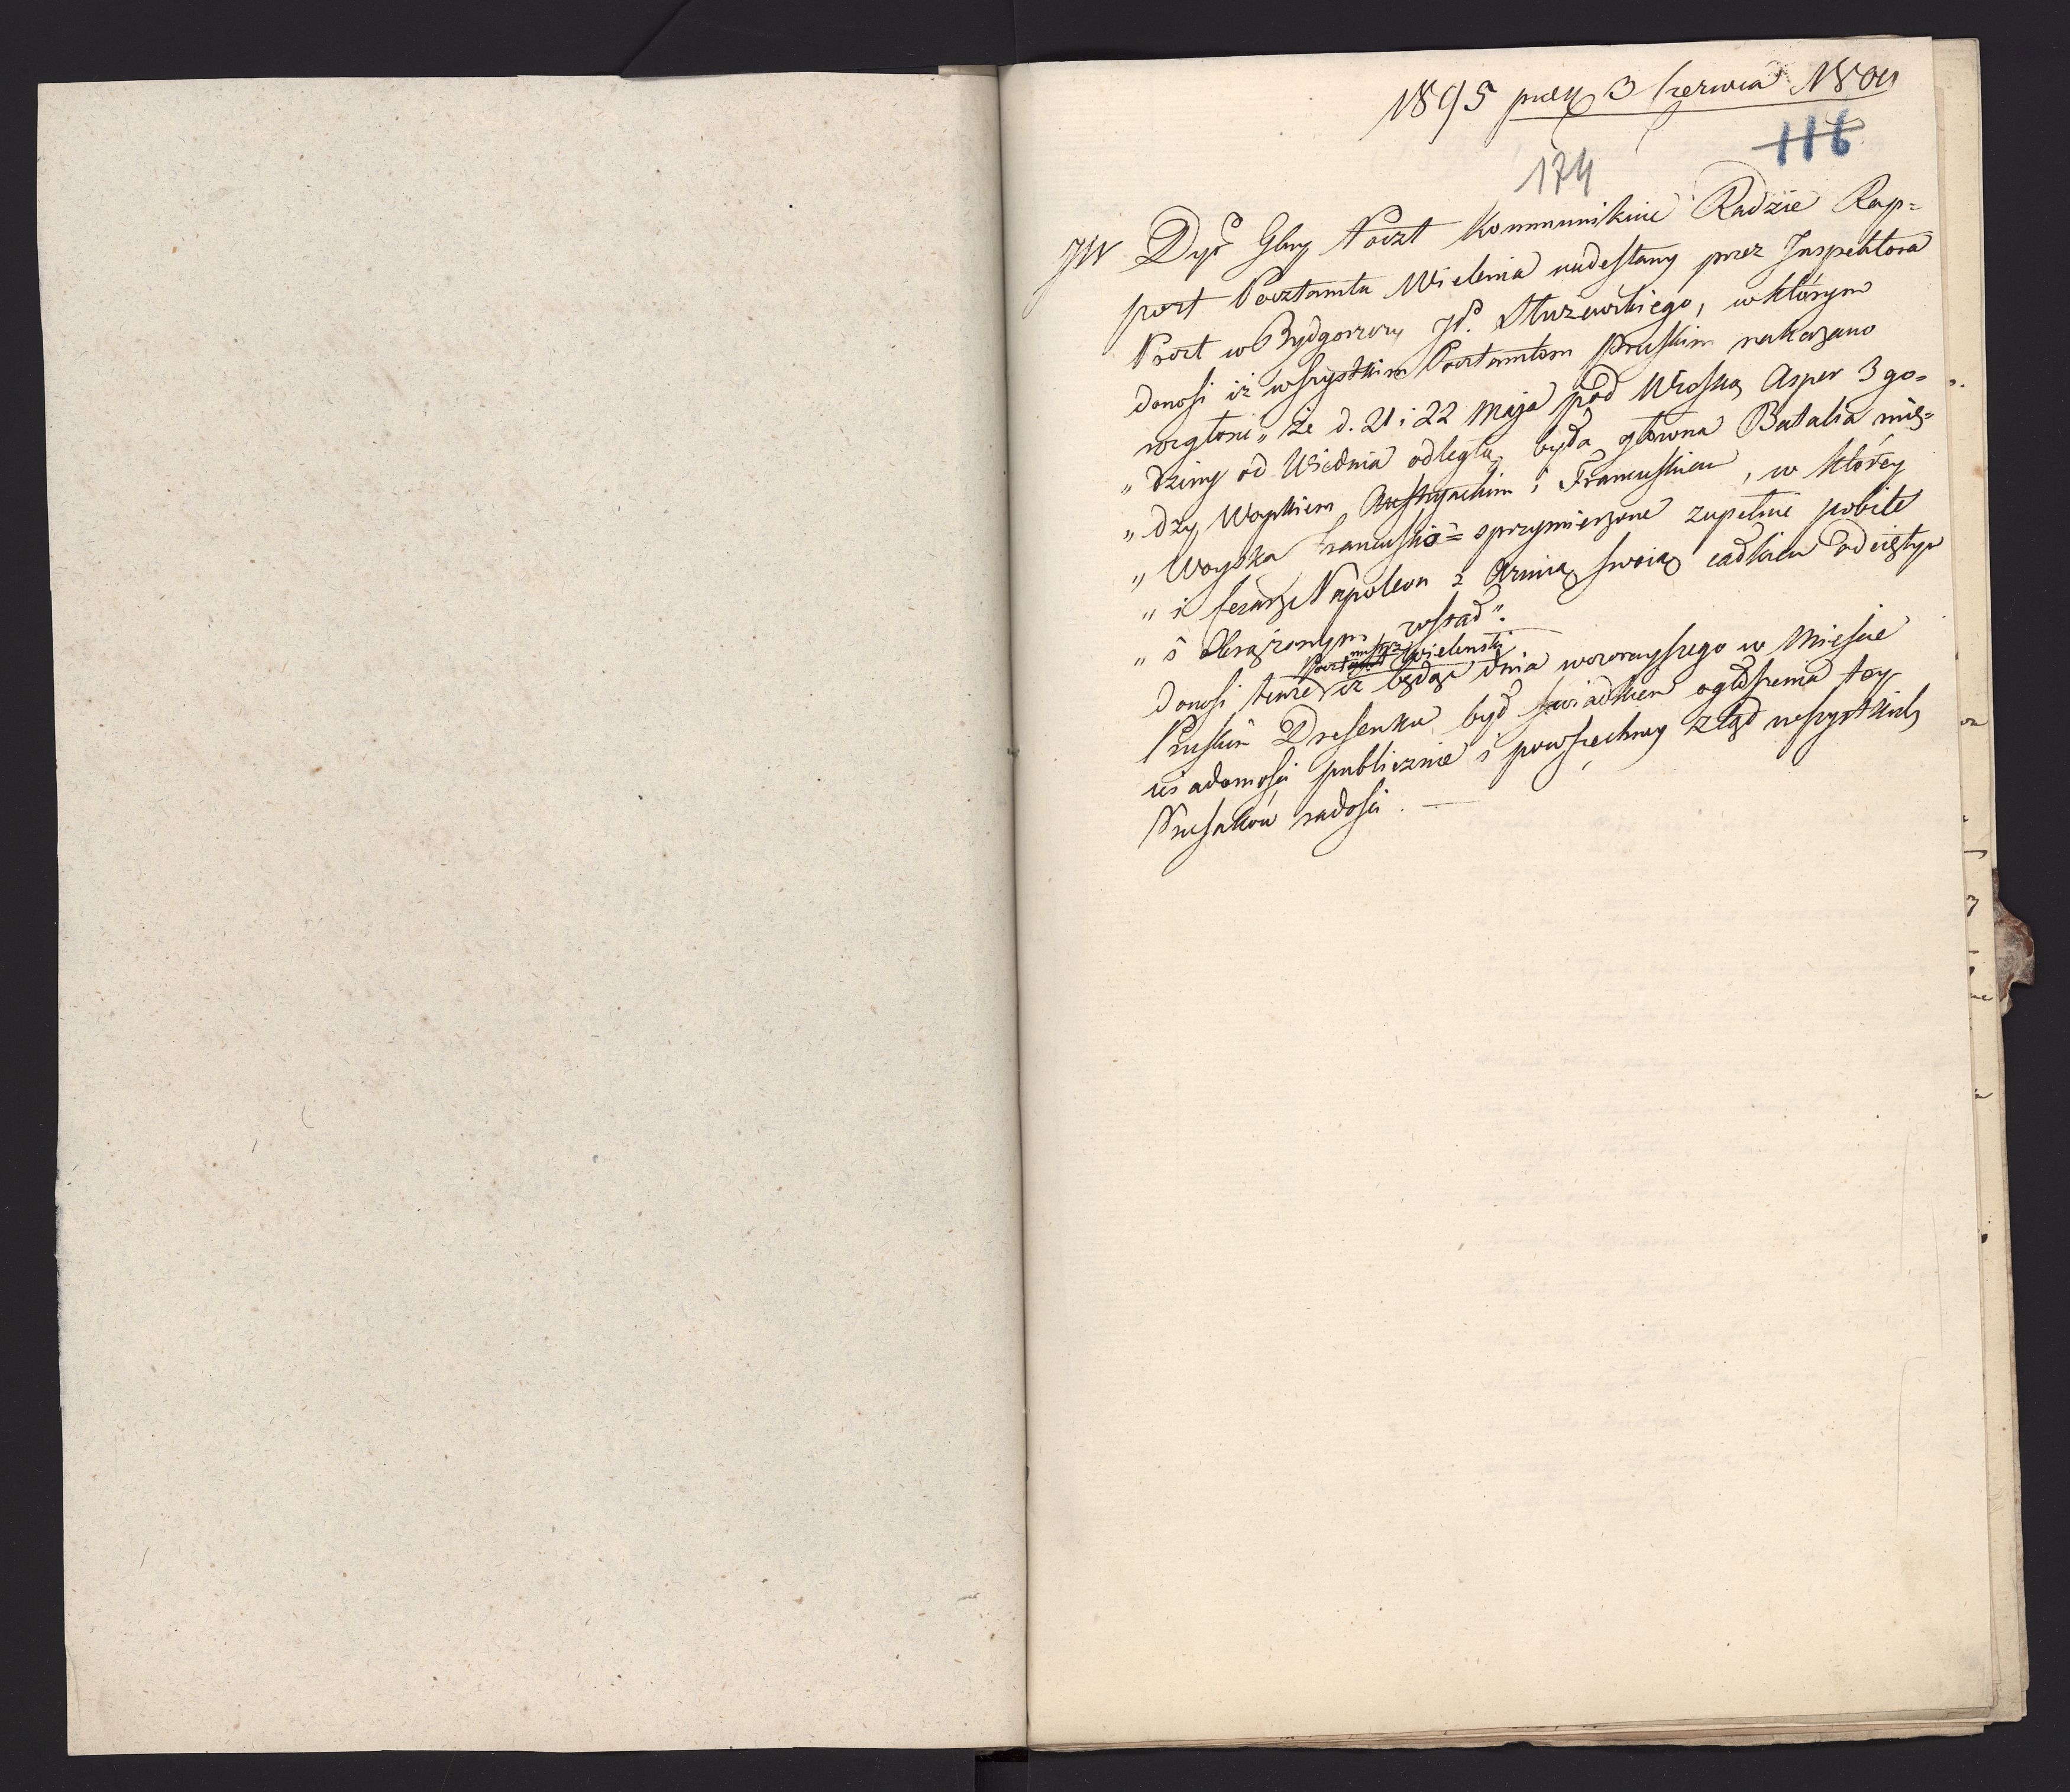 1895 3 Czerwca 1809
116
174
JW Dyr Glny Poczt Kommunikuie Radzie Rap=
port Pocztamtu Wielenia nadesłany przez Inspektora
Poczt w Bydgoszczy JP. Służewskiego, w którym
donosi iż wszystkim Pocztamtom Pruskim nakazano
rozgłosić „że d. 21 i 22 Maja pod Wioską Asper 3 go=
„dziny od Wiednia odległą, była główna Batalia mię=
„dzy Woyskiem Austryackim i Francuskiem, w którey
„Woyska Francusko=sprzymierzone zupełnie pobite
„i Cesarz Napoleon z Armią swoią całkiem odciętym
„i okrążonym został".
Donosi tenże Pocztmistrz Wieleński iż będąc dnia wczorayszego w Mieście
Pruskim Dresenku był świadkiem ogłoszenia tey
wiadomości publicznie i powszechney ztąd wszystkich
Prusaków radości. —